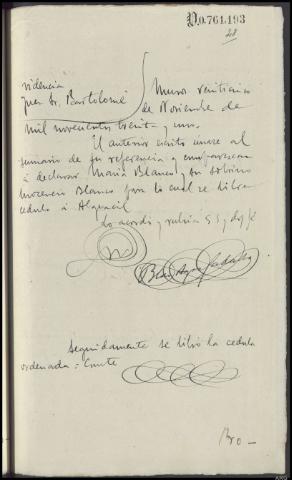 P.0.761.193
28
videncia
Juez Sr. Bartolomé
Muros veinticinco
de Noviembre de
mil novecientos treinta y uno.
El anterior escrito únase al
sumario de su referencia y comparezcan
á declarar María Blanco y su sobrino
Inocencio Blanco para lo cual se libre
cedula á Alguacil
Lo acordó y rubrica S S y doy fe
Seguidamente se libró la cedula
ordenada =